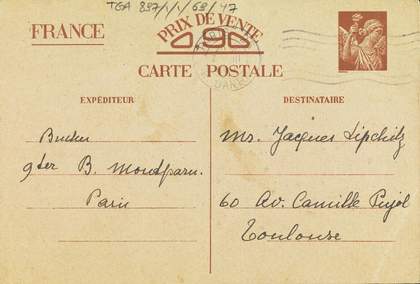 TGA 897/1/1/68/47
FRANCE
PRIX DE VENTE
0,90
CARTE POSTALE
EXPÉDITEUR
DESTINATAIRE
Bucher
9ter B. Montparn.
Paris
Ms. Jacques Lipchitz
60 Av. Camille Pujol
Toulouse